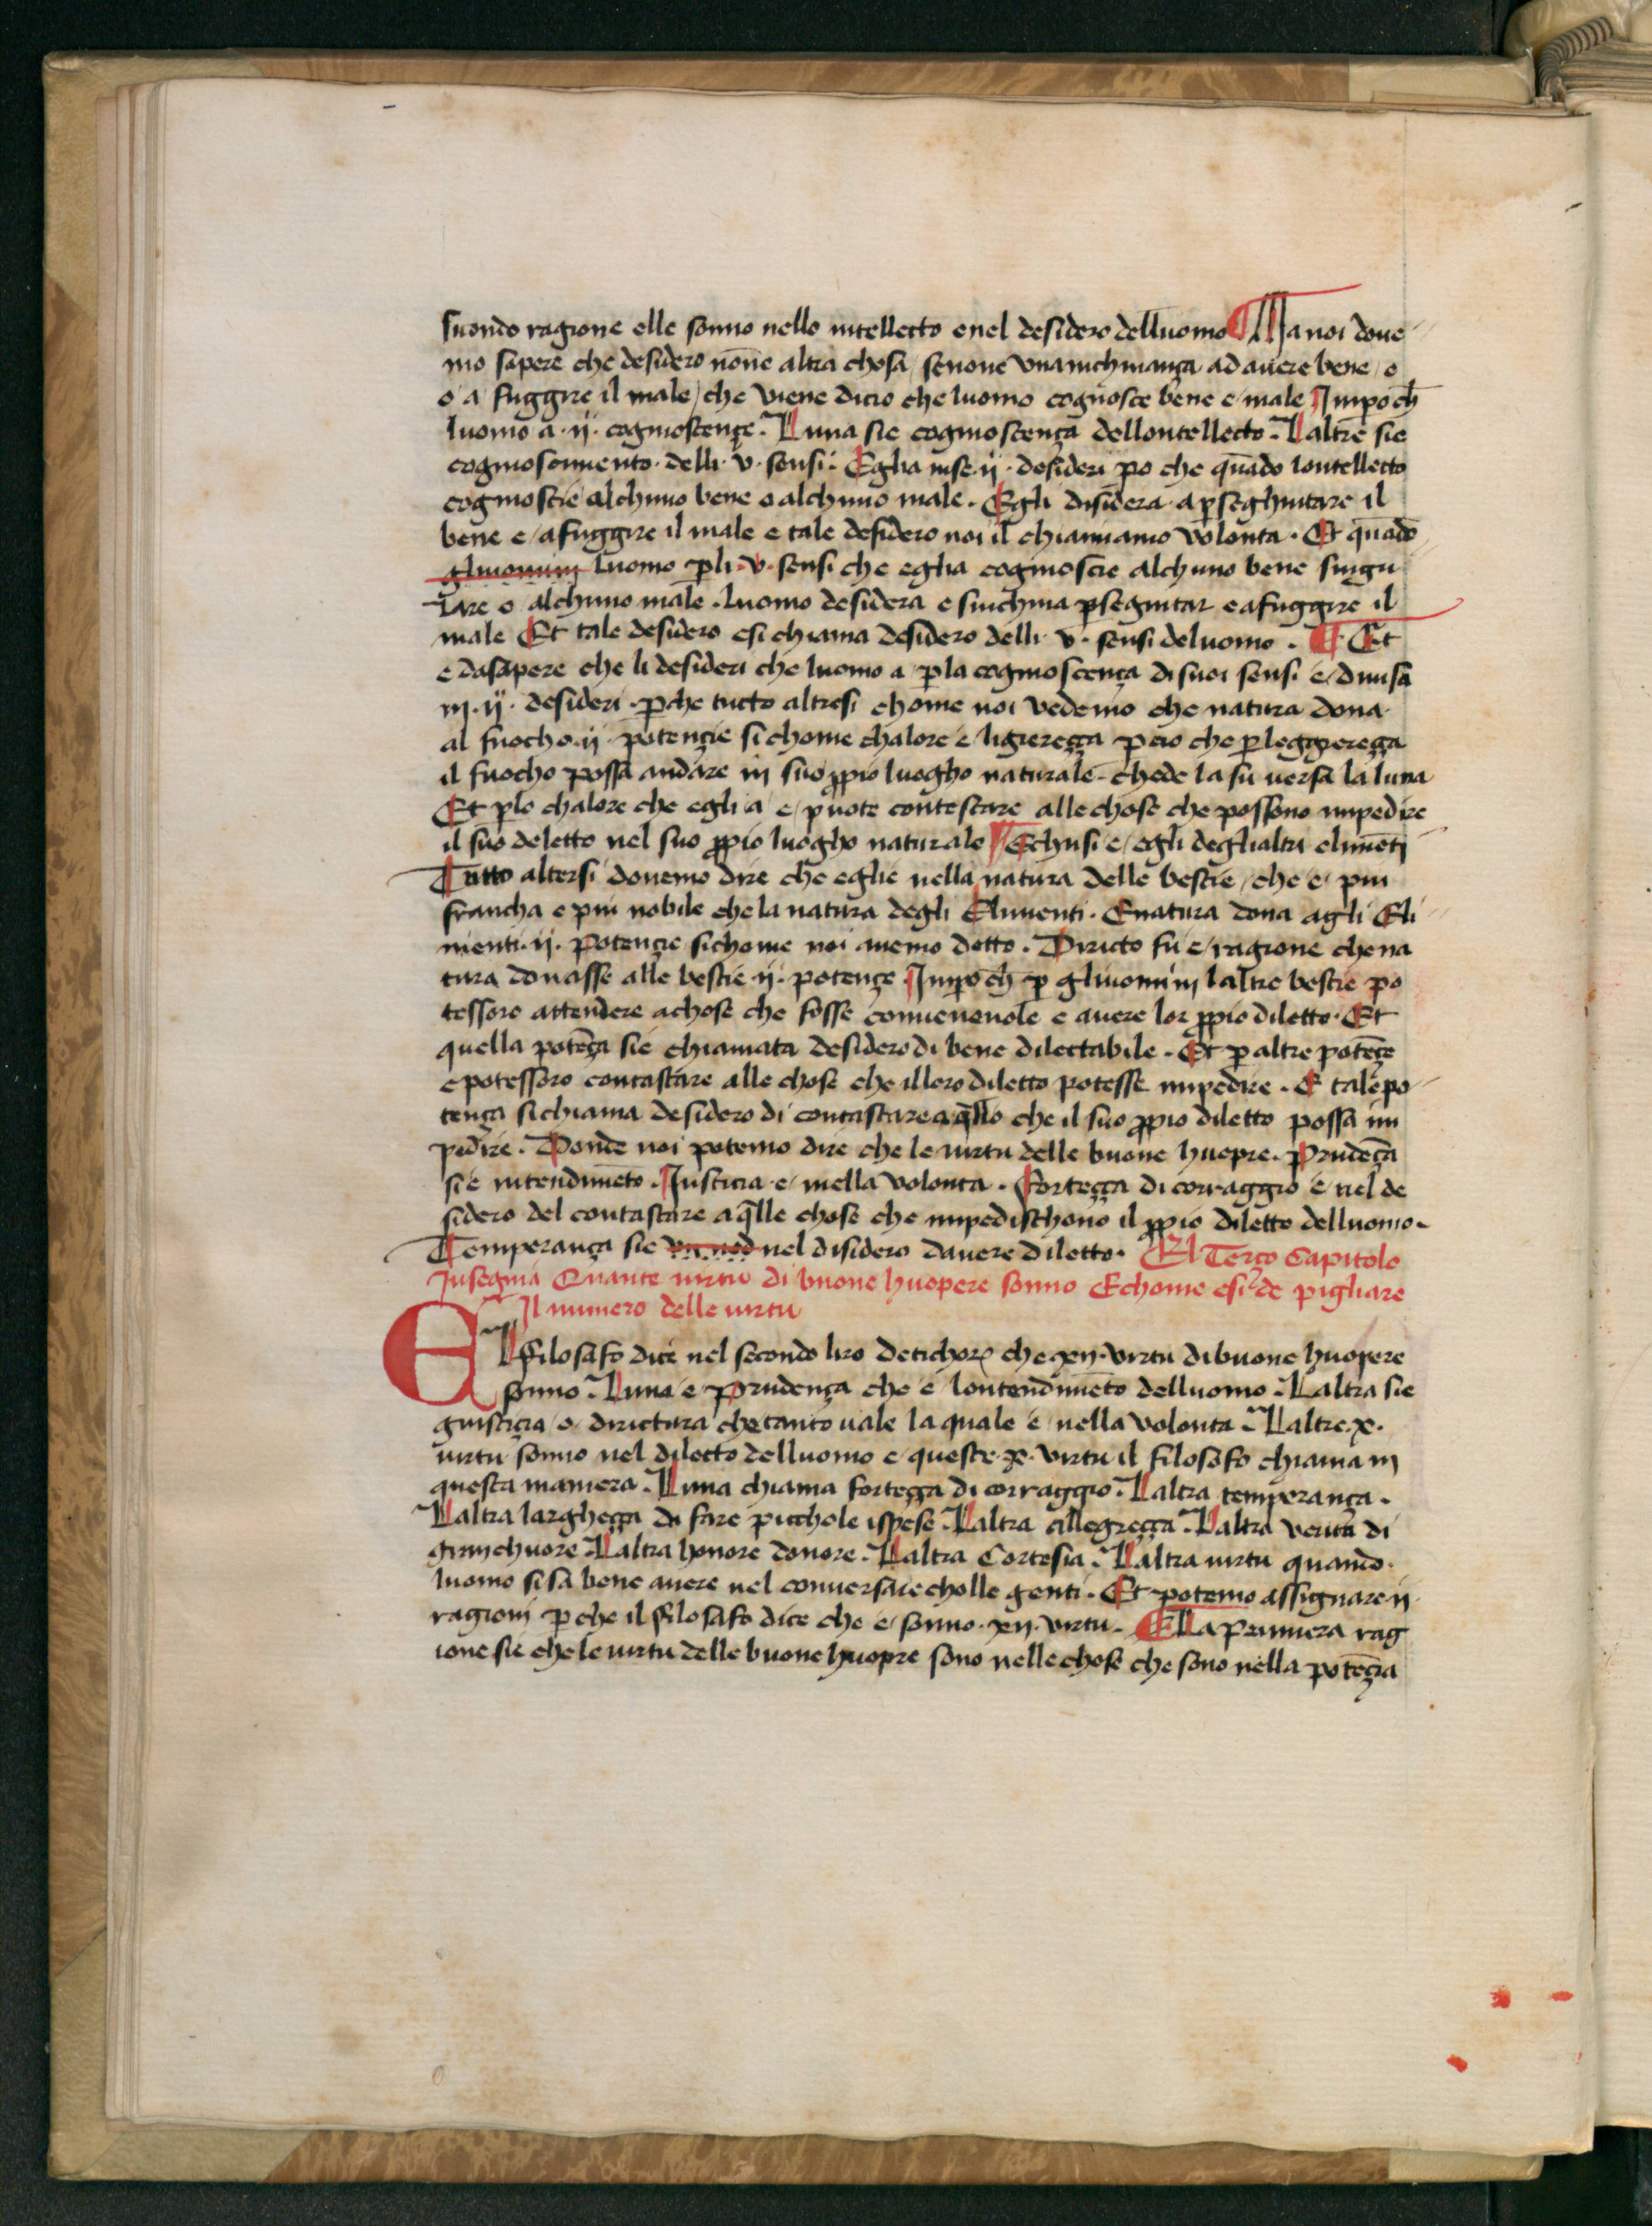 suondo ragione elle sonno nello intellecto enel desidero delluomo Ma noi doue
mo sapere che desidero nōne altra chosa senone vnainchinança ad auere bene o
o a fuggire il male che viene dicio che luomo cognosce bene e male Impoch̄
luomo a ·ij· cognoscençe. Luna sie cognoscença dellontellecto. Laltre sie
cognoscimento delli v sensi. Eglia inse ·ij· desideri po che quādo lontellecto
cognoscie alchuno bene o alchuno male. Egli disidera a ꝑseghuitare il
bene e afuggire il male e tale desidero noi il chiamiamo volonta. Et quādo
gliuomini luomo ꝑli v sensi che eglia cognoscie alchuno bene singu
lare o alchuno male. luomo desidera e sinchina ꝑseguitar e afuggire il
male Et tale desidero esi chiama desidero delli v sensi deluomo. Et
e dasapere che li desideri che luomo a ꝑla cognoscença di suoi sensi e diuisa
in ·ij· desideri. ꝑche tutto altresi chome noi vedemo che natura dona
al fuocho ·ij· potençie si chome chalore e ligiereçça ꝑcio che ꝑleggiereçça
il fuocho possa andare in suo ꝓpio luogho naturale chede la su versa la luna
Et ꝑlo chalore che egli a e puote contestare alle chose che possono impedire
il suo deletto nel suo ꝓpio luogho naturale Echusi e egli deglialtri elimēti
Tutto altersi douemo dire che eglie nella natura delle bestie che e piu
francha e piu nobile che la natura degli Elimenti. Enatura dona agli Eli
menti ·ij· potençie sichome noi auemo detto. Diricto fu e ragione che na
tura donasse alle bestie ·ij· potençe Impoch̄ ꝑ gliuomini laltre bestie po
tessoro attendere achose che fosse conueneuole e auere lor ꝓpio diletto. Et
quella potēça sie chiamata desidero di bene dilectabile. Et ꝑ altre potēçe
e potessoro contastare alle chose che illoro diletto potesse impedire. E tale po
tença si chiama desidero di contastare a q̄llo che il suo ꝓpio diletto possa im
pedire. Donde noi potemo dire che le uirtu delle buone huopre. Prudēça
sie intendimēto. Iusticia e nella volonta. Forteçça di corraggio e nel de
sidero del contastare a q̄lle chose che impedischono il ꝓpio diletto delluomo.
Temperança sie nel disidero dauere diletto. El Terço Capitolo
Insegnia Quante uirtu di buone huopere sonno Echome esi de pigliare
Il numero delle uirtu
El filosafo dice nel secondo liro detichorꝫ che xij virtu dibuone huopere
sonno. Luna e prudença che e lontendimēto delluomo. Laltra sie
giusticia o dirictura che tanto uale la quale e nella volonta. Laltre x
uirtu sonno nel diletto delluomo e queste x virtu il filosafo chiama in
questa maniera. Luna chiama forteçça di corraggio. Laltra temperança.
Laltra largheçça di fare picchole ispese. Laltra allegreçça. Laltra verita di
gran chuore. Laltra honore donore. Laltra Cortesia. Laltra uirtu quando
luomo sisa bene auere nel conuersare cholle genti. Et potemo assignare ij
ragioni ꝑche il filosafo dice che e sonno xij virtu. Ella Primiera rag
ione sie che le uirtu delle buone huopre sono nelle chose che sono nella potēçia